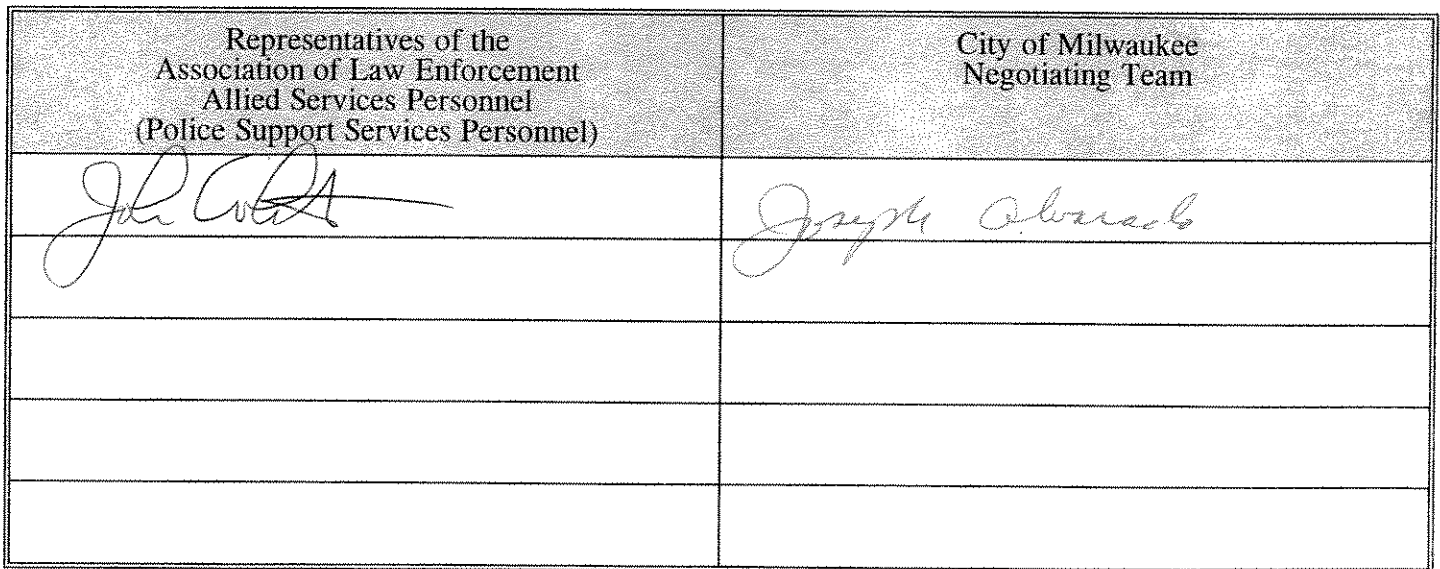 Representatives of the
Association of Law Enforcement
Allied Services Personnel
(Police Support Services Personnel)
City of Milwaukee
Negotiating Team
John
Joseph Alvarado